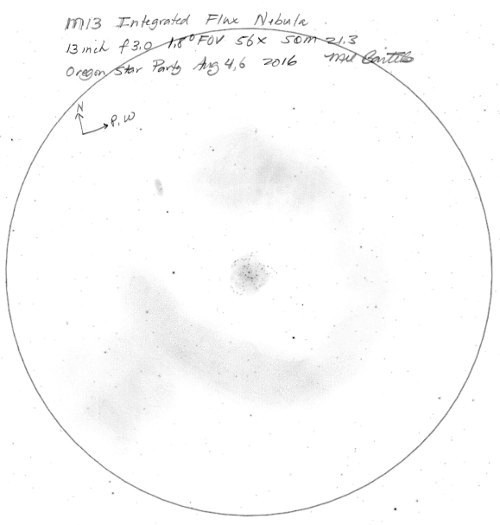 M13 Integrated Flux Nebula
13 inch f3.0 1.8° FOV 56x SQM 21.3
Oregon Star Party Aug 4,6 2016 Mel Bartels
N
P, W